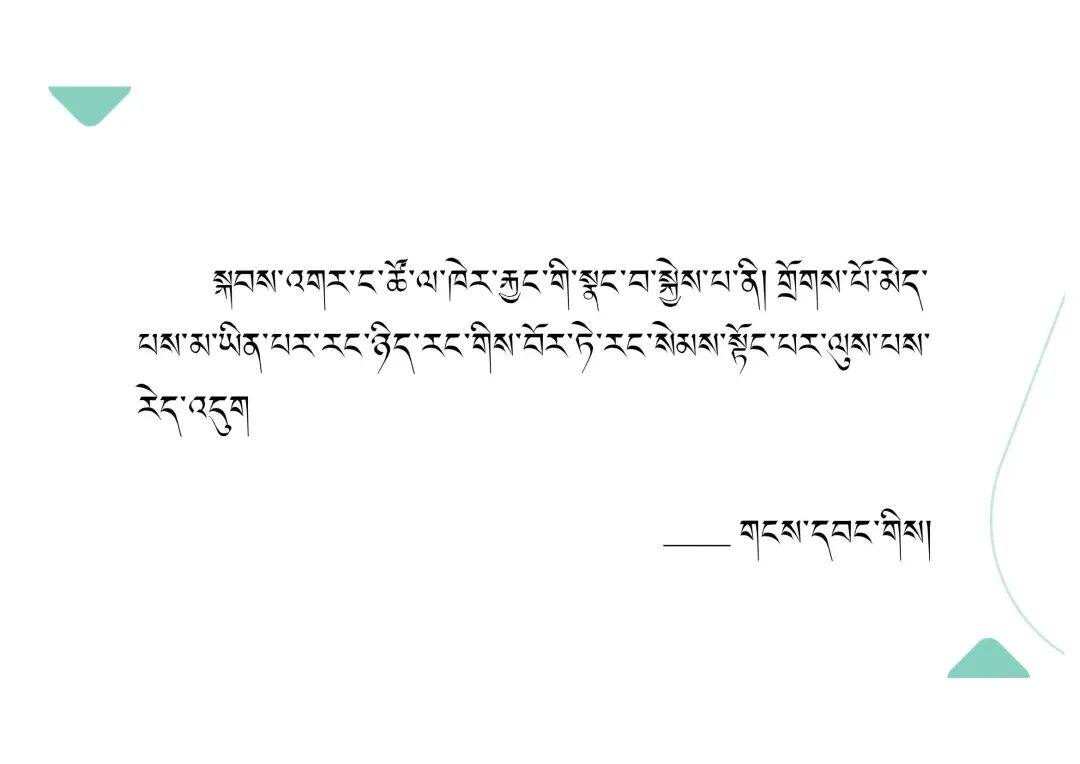 སྐབས་འགར་ང་ཚོ་ལ་ཁེར་རྐྱང་གི་སྣང་བ་སྐྱེས་པ་ནི། གྲོགས་པོ་མེད་
པས་མ་ཡིན་པར་རང་ཉིད་རང་གིས་བོར་ཏེ་རང་སེམས་སྟོང་པར་ལུས་པས་
རེད་འདུག
____ གངས་དབང་གིས།